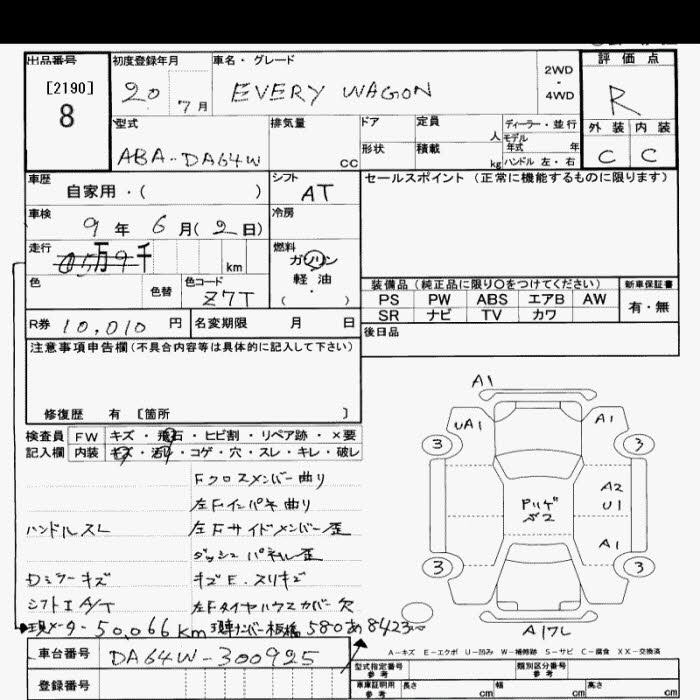 出品番号
[2190]
8
初度登録年月
20 7月
車名・グレード
EVERY WAGON
2WD
・
4WD
評価点
R
外装 内装
C C
型式
ABA-DA64W
排気量
cc
ドア
形状
定員
人
積載
kg
ディーラー・並行
モデル年式 年
ハンドル 左・右
車歴
自家用・( )
シフト
AT
セールスポイント(正常に機能するものに限ります)
車検
9年 6月(2日)
冷房
走行
万 9千 km
燃料
ガソリン
軽油
( ・ )
色
色替
色コード
Z7T
装備品(純正品に限り○をつけてください)
新車保証書
PS PW ABS エアB AW
SR ナビ TV カワ
有・無
R券 10,010 円
名変期限 月 日
後日品
注意事項申告欄(不具合内容等は具体的に記入して下さい)
修復歴 有 [箇所 ]
検査員
記入欄
FW キズ・飛石・ヒビ割・リペア跡・×要
内装 キズ・汚レ・コゲ・穴・スレ・キレ・破レ
Fクロスメンバー曲り
左Fインパネ曲り
ハンドルスレ
左Fサイドメンバー歪
ダッシュパネル歪
Dミラーキズ
キズE.スリキズ
シフトI A/T
左Fタイヤハウスカバー欠
現メーター50,066km 現車ナンバー板橋580あ8423
車台番号
DA64W-300925
登録番号
A1
UA1
A1
3
3
A2
U1
A1
3
3
A17L
A-キズ E-エクボ U-凹み W-補修跡 S-サビ C-腐食 XX-交換済
型式指定番号
参考
類別区分番号
参考
車庫証明用
参考
長さ cm
幅 cm
高さ cm